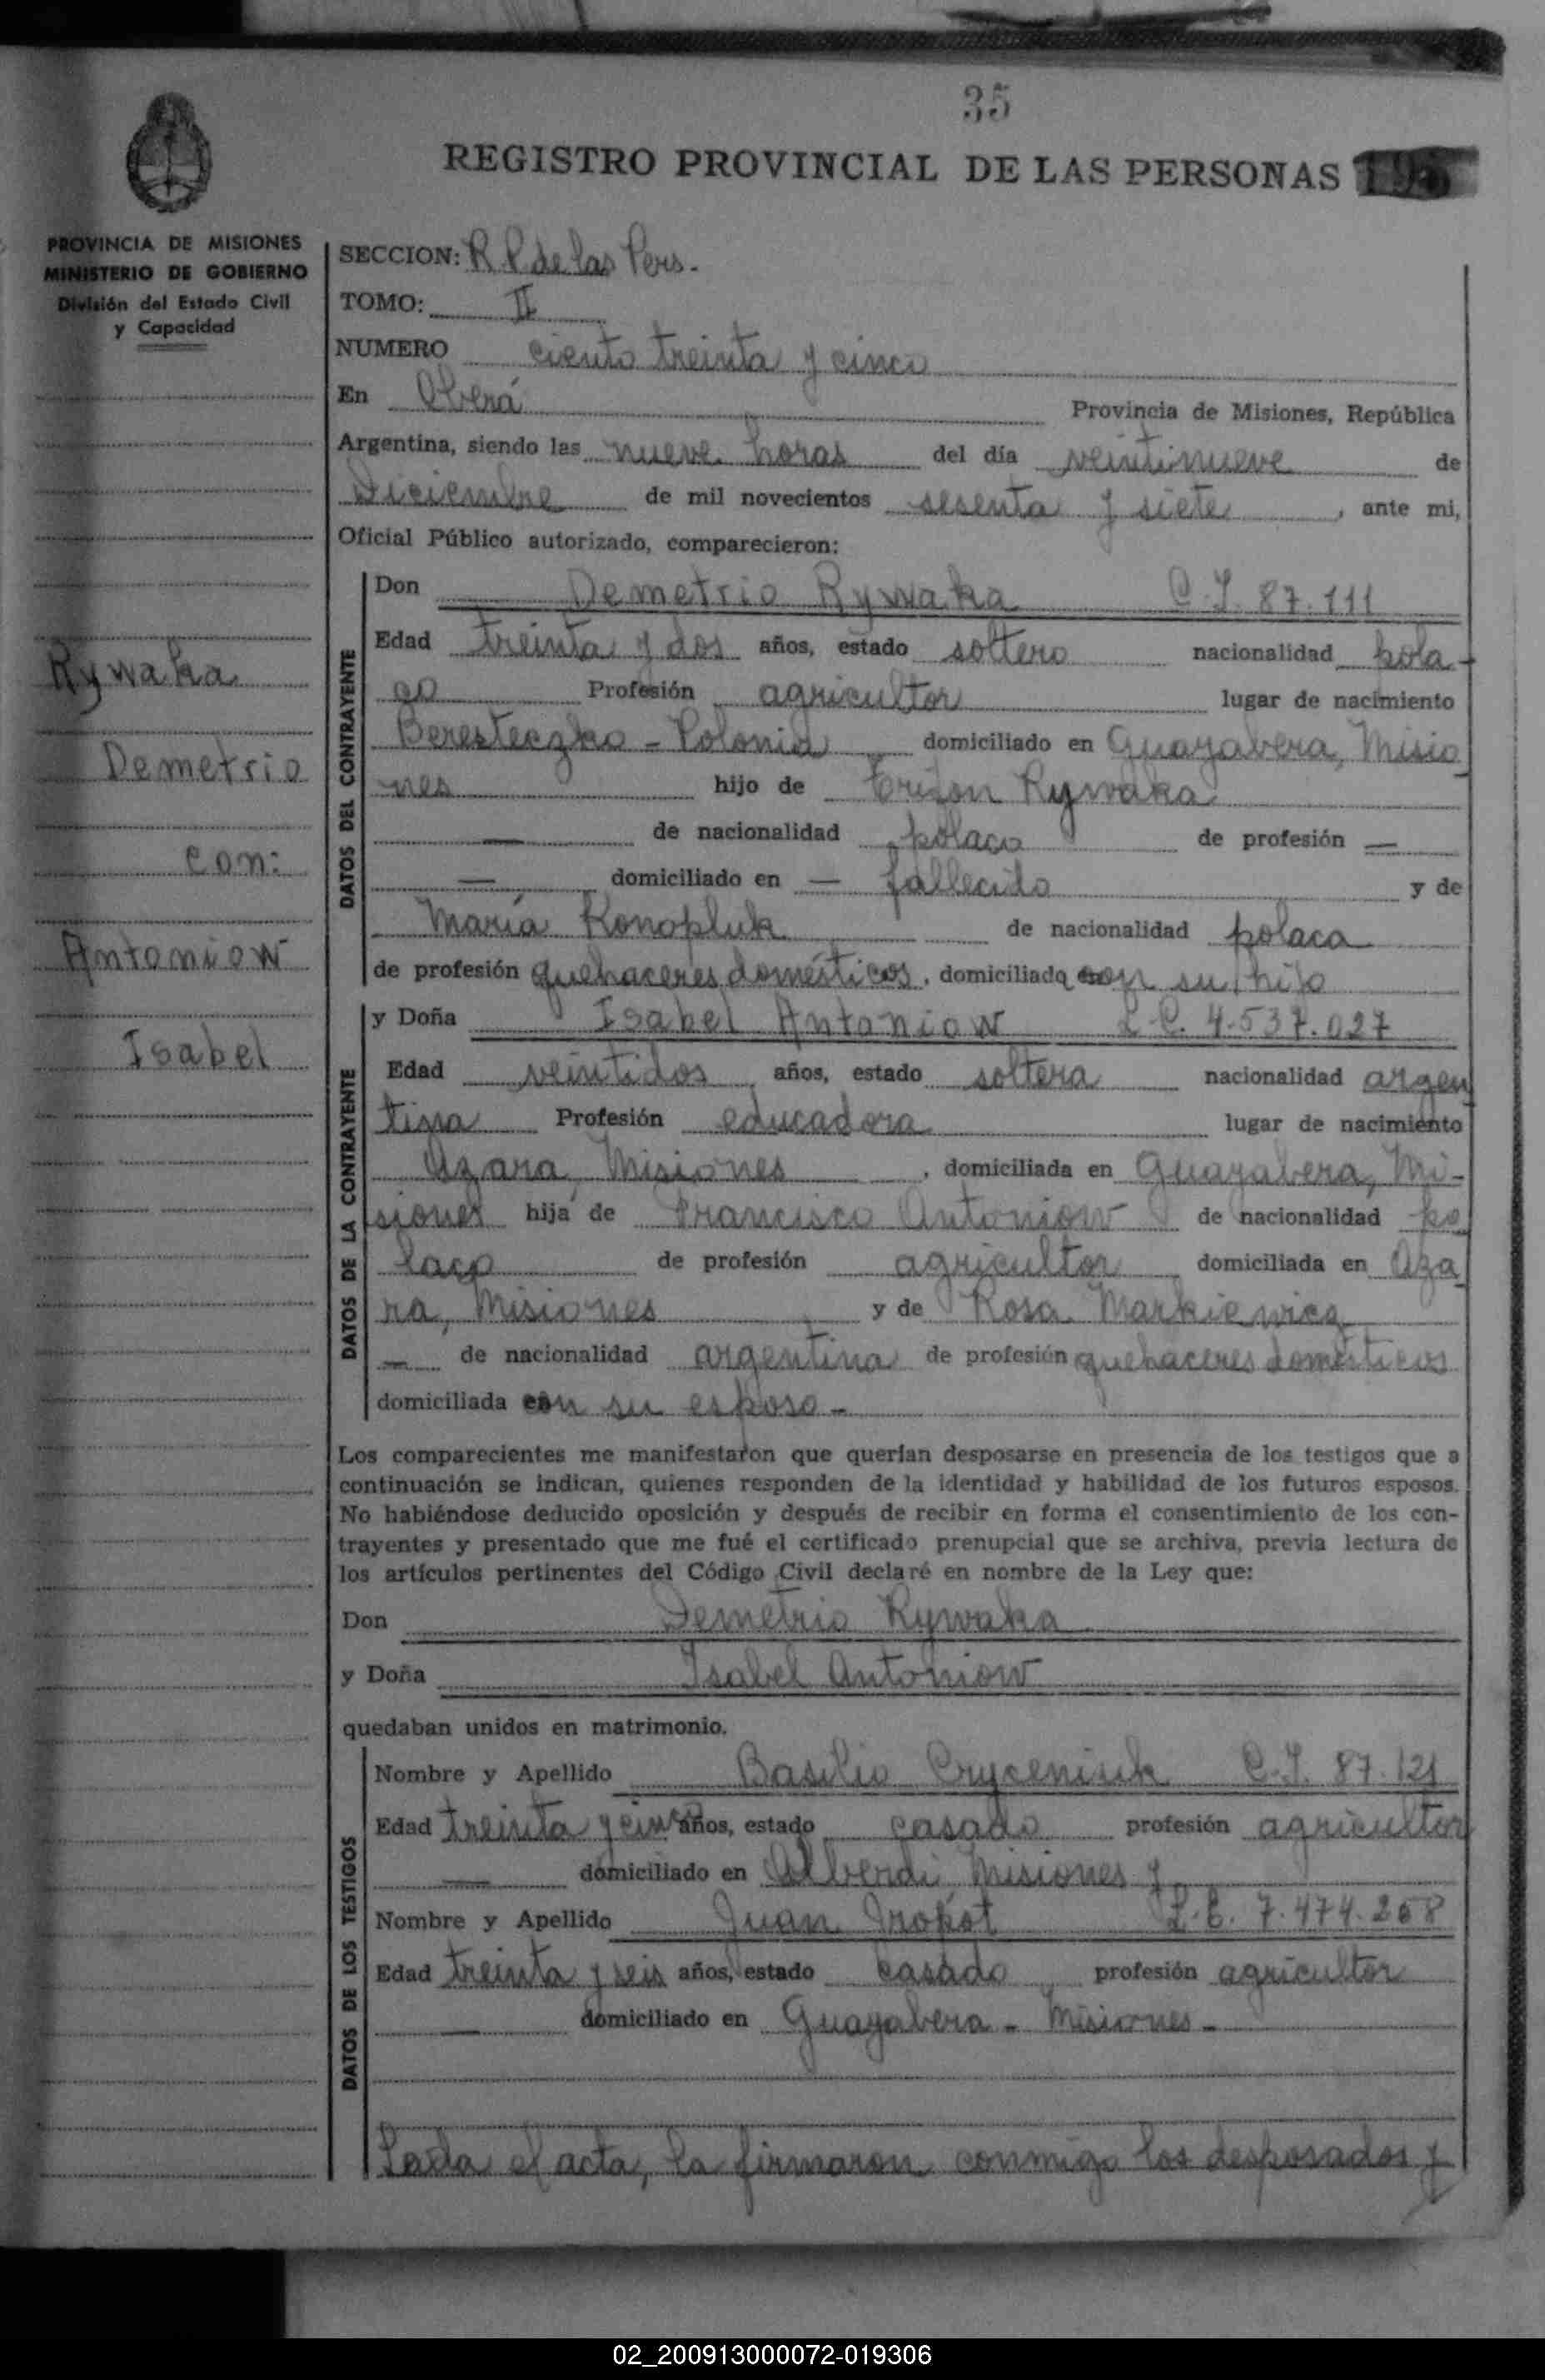 35
REGISTRO PROVINCIAL DE LAS PERSONAS
PROVINCIA DE MISIONES
MINISTERIO DE GOBIERNO
División del Estado Civil
y Capacidad
Rywaka
Demetrio
con:
Antoniow
Isabel
SECCION: R. P. de las Pers.
TOMO: II
NUMERO ciento treinta y cinco
En Oberá Provincia de Misiones, República
Argentina, siendo las nueve horas del día veintinueve de
Diciembre de mil novecientos sesenta y siete, ante mi,
Oficial Público autorizado, comparecieron:
DATOS DEL CONTRAYENTE
Don Demetrio Rywaka C.I. 87.111
Edad treinta y dos años, estado soltero nacionalidad pola-
co Profesión agricultor lugar de nacimiento
Beresteczko - Polonia domiciliado en Guayabera, Misio
nes hijo de Rywaka
— de nacionalidad polaco de profesión —
— domiciliado en — fallecido y de
María Konopluk de nacionalidad polaca
de profesión quehaceres domésticos, domiciliada con su hijo
DATOS DE LA CONTRAYENTE
y Doña Isabel Antoniow L.C. 4.537.027
Edad veintidos años, estado soltera nacionalidad argen
tina Profesión educadora lugar de nacimiento
Azara, Misiones, domiciliada en Guayabera, Mi-
siones hija de Francisco Antoniow de nacionalidad po
laco de profesión agricultor domiciliada en Aza
ra, Misiones y de Rosa Markiewicz
— de nacionalidad argentina de profesión quehaceres domésticos
domiciliada con su esposo -
Los comparecientes me manifestaron que querían desposarse en presencia de los testigos que a
continuación se indican, quienes responden de la identidad y habilidad de los futuros esposos.
No habiéndose deducido oposición y después de recibir en forma el consentimiento de los con-
trayentes y presentado que me fué el certificado prenupcial que se archiva, previa lectura de
los artículos pertinentes del Código Civil declaré en nombre de la Ley que:
Don Demetrio Rywaka
y Doña Isabel Antoniow
quedaban unidos en matrimonio.
DATOS DE LOS TESTIGOS
Nombre y Apellido Basilio C.I. 87.121
Edad treinta y cinco años, estado casado profesión agricultor
— domiciliado en Alberdi, Misiones y
Nombre y Apellido Juan L.E. 7.474.268
Edad treinta y seis años, estado casado profesión agricultor
— domiciliado en Guayabera - Misiones -
el acta, la firmaron conmigo los desposados y
02_200913000072-019306